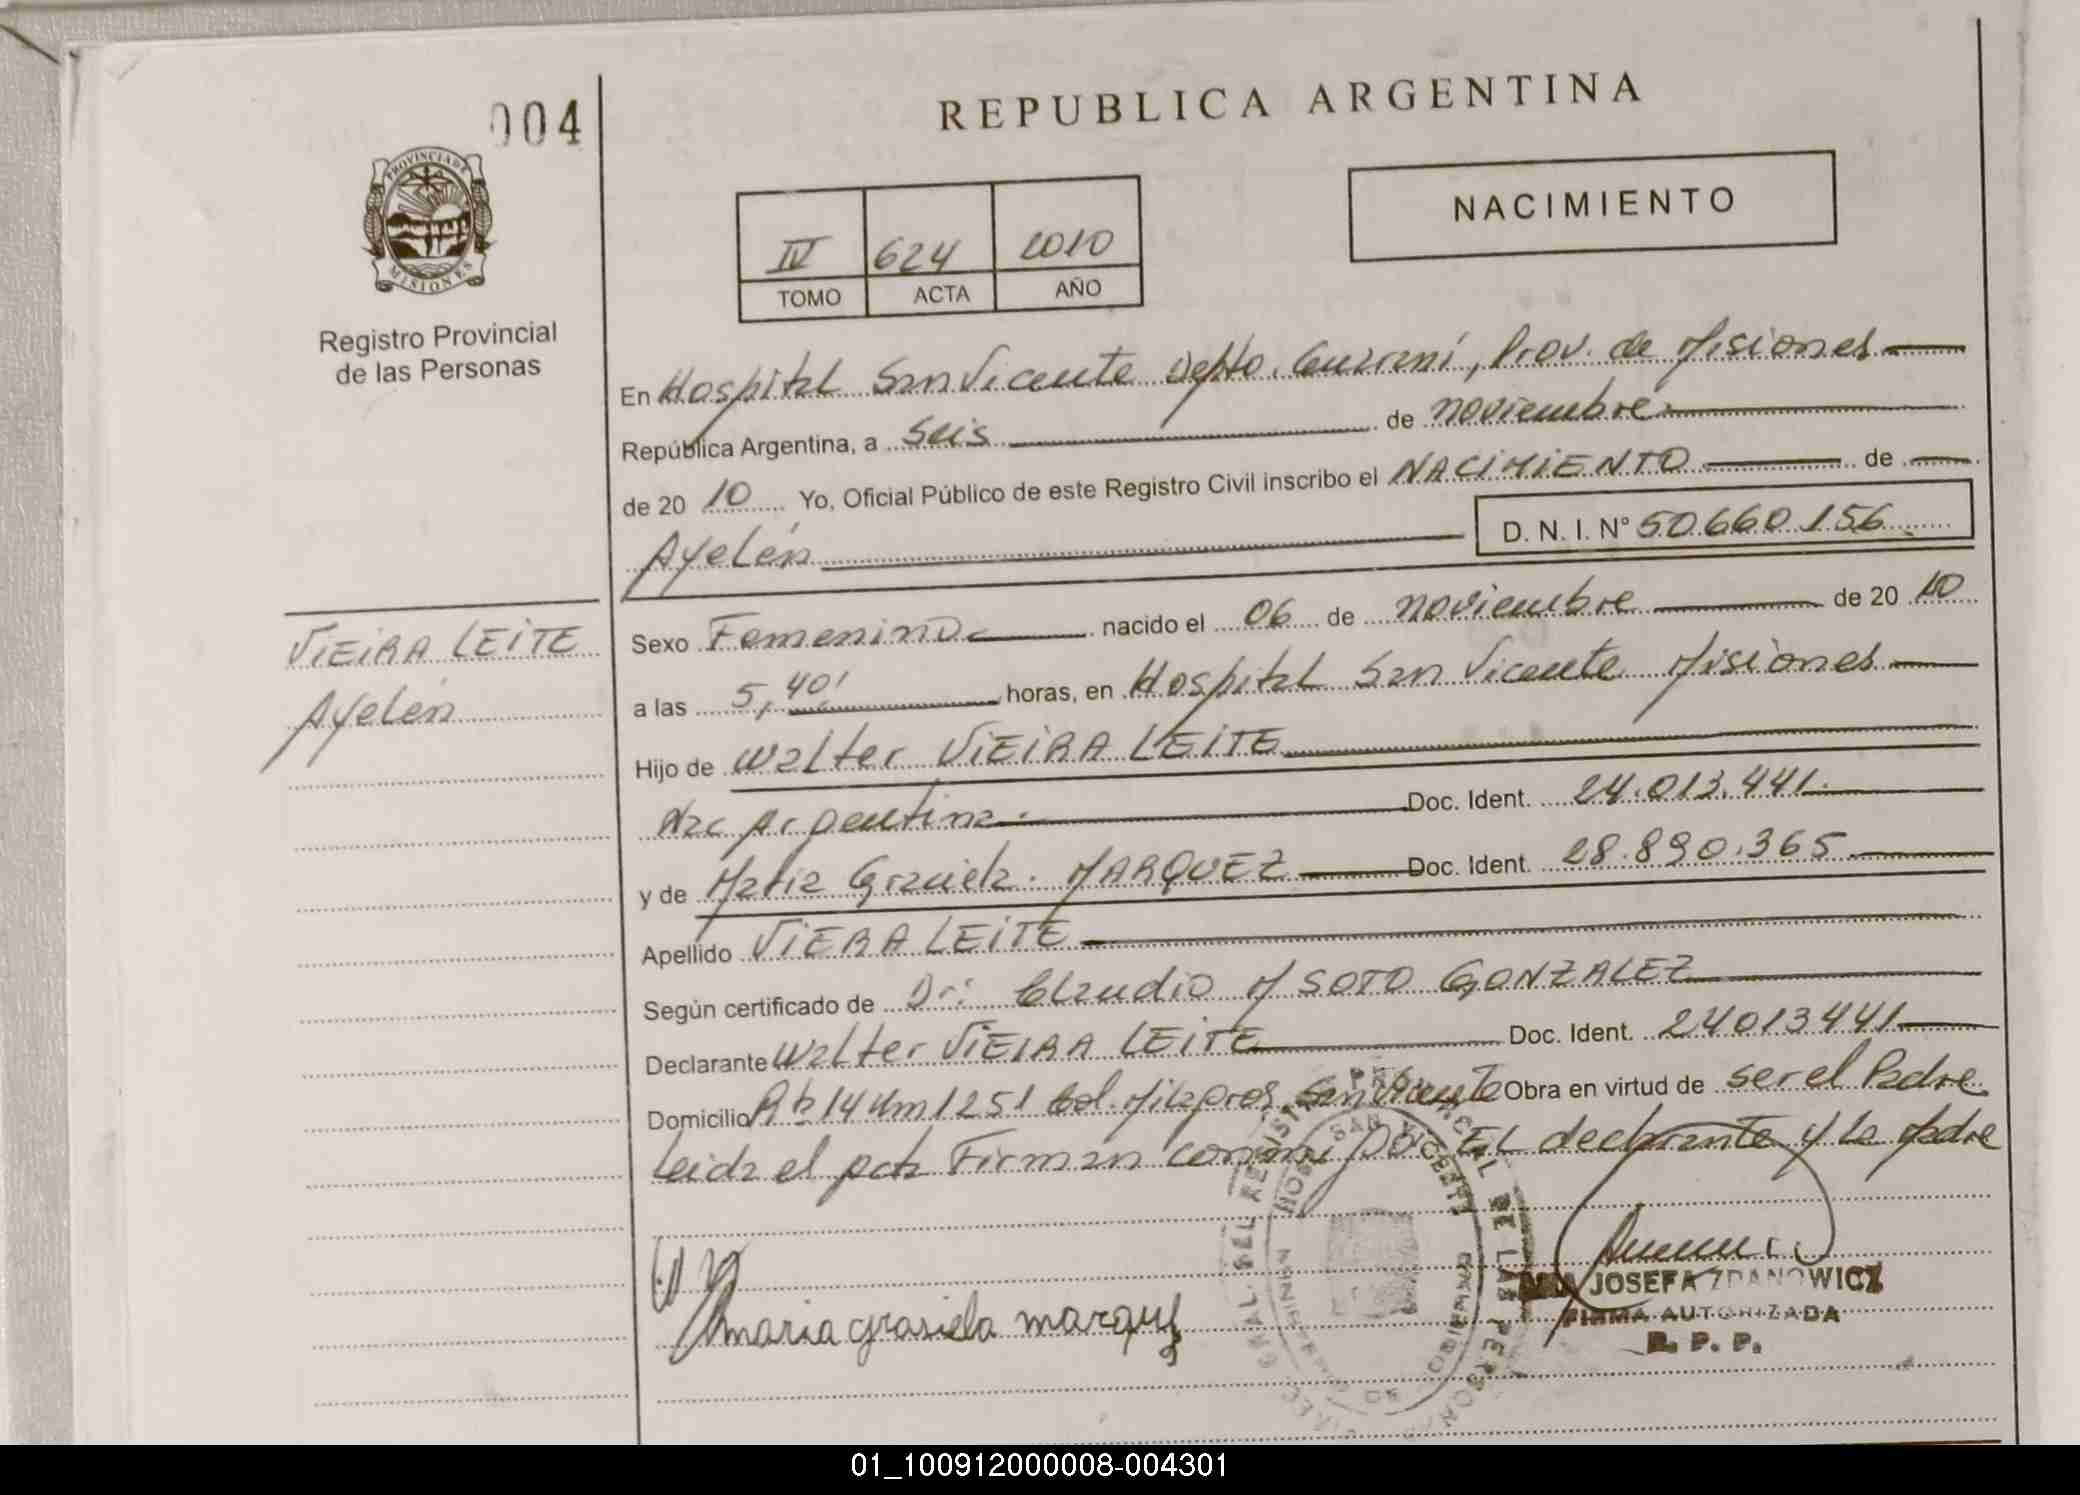 004
REPUBLICA ARGENTINA
PROVINCIA DE
MISIONES
Registro Provincial
de las Personas
NACIMIENTO
IV 624 2010
TOMO ACTA AÑO
En Hospital San Vicente Depto. Guarani, Prov. de Misiones
República Argentina, a Seis de noviembre
de 20 10 Yo, Oficial Público de este Registro Civil inscribo el NACIMIENTO de
Ayelén D. N. I. N° 50660156
VIEIRA LEITE
Ayelén
Sexo Femenino nacido el 06 de noviembre de 20 10
a las 5,40' horas, en Hospital San Vicente Misiones
Hijo de Walter VIEIRA LEITE
Nac Argentina Doc. Ident. 24.013.441.
y de Maria Graciela. MARQUEZ Doc. Ident. 28.890.365
Apellido VIERA LEITE
Según certificado de Dr: Claudio M SOTO GONZALEZ
Declarante Walter VIEIRA LEITE Doc. Ident. 24013441
Domicilio Rt 14 Km 1251 Col. Milagros San Vicente Obra en virtud de ser el Padre
Leida el acta Firman conmigo EL declarante y la Madre
maria grasiela marquez
HOSPITAL SAN VICENTE
JOSEFA ZDANOWICZ
FIRMA AUTORIZADA
R. P. P.
01_100912000008-004301